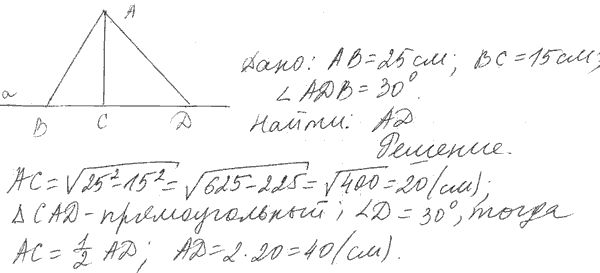 A
a
B C D
Дано: AB=25см; BC=15см;
∠ADB=30°.
Найти: AD
Решение.
AC=√25²-15²=√625-225=√400=20(см);
ΔCAD-прямоугольный; ∠D=30°, тогда
AC=1/2 AD; AD=2·20=40(см).